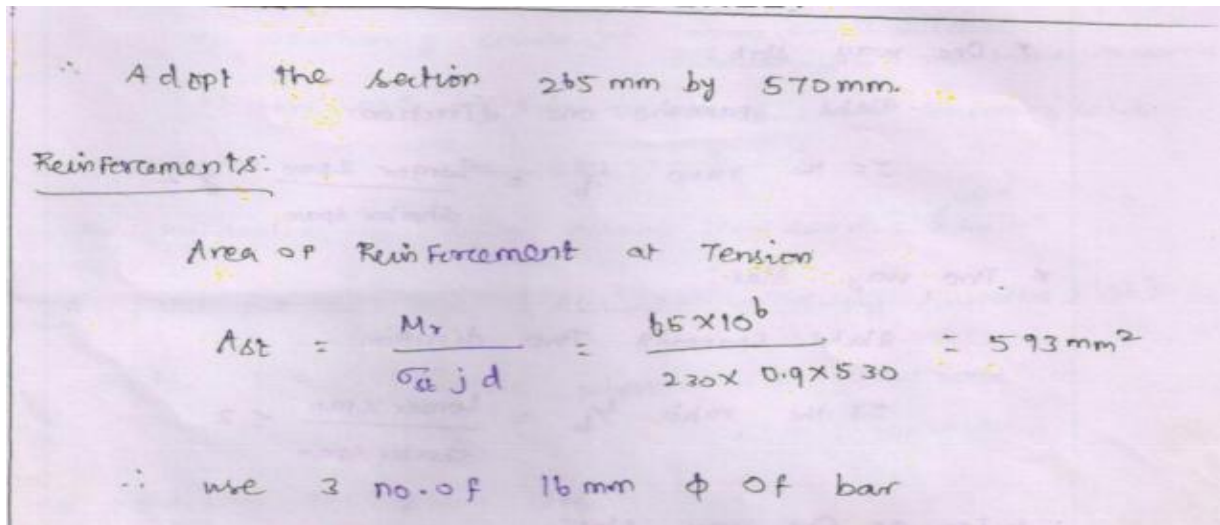 ∴ Adopt the section 265 mm by 570 mm.
Reinforcements:
Area of Reinforcement at Tension
Ast = Mr / σst j d = 65×10⁶ / 230× 0.9×530 = 593 mm²
∴ use 3 no. of 16 mm ϕ of bar